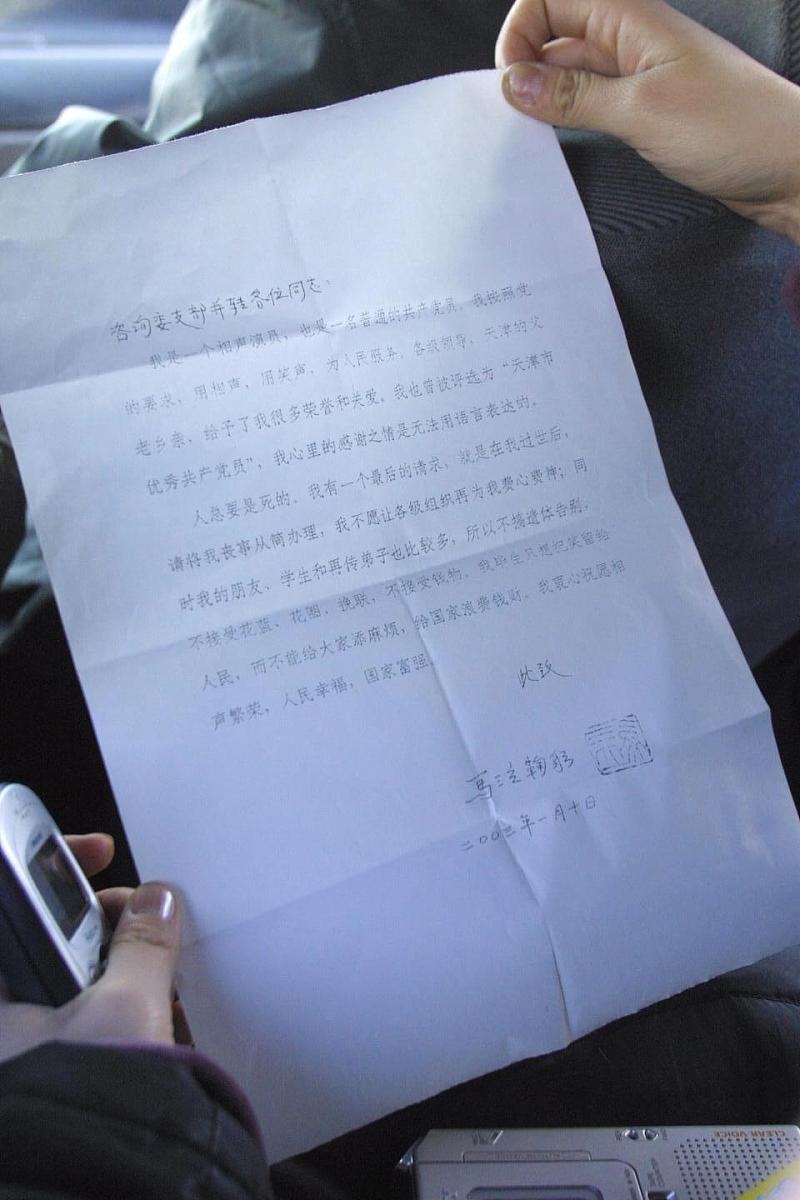 咨询委支部并转各位同志：
我是一个相声演员，也是一名普通的共产党员。我按照党
的要求，用相声，用笑声，为人民服务，各级领导，天津的父
老乡亲，给予了我很多荣誉和关爱。我也曾被评选为“天津市
优秀共产党员”，我心里的感谢之情是无法用语言表达的。
人总要是死的。我有一个最后的请求，就是在我过世后，
请将我丧事从简办理，我不愿让各级组织再为我费心费神；同
时我的朋友、学生和再传弟子也比较多，所以不搞遗体告别，
不接受花蓝、花圈、挽联，不接受钱物。我毕生只想把笑留给
人民，而不能给大家添麻烦，给国家浪费钱财。我衷心祝愿相
声繁荣，人民幸福，国家富强
此致
马三立鞠躬
二00三年一月十日
CLEAR VOICE